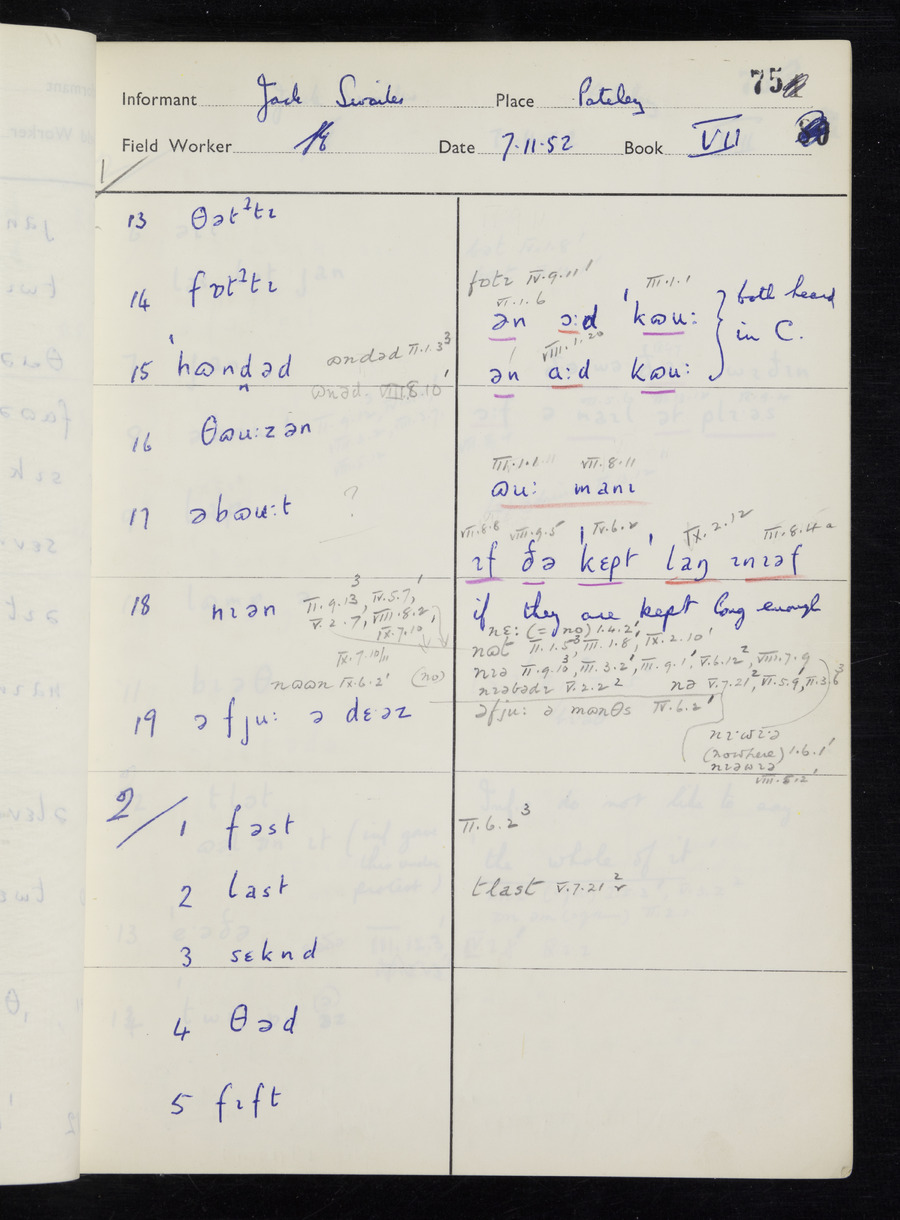 75
Informant Jack Swailes Place Pateley
Field Worker Date 7.11.52 Book VII
1/
13 θət²tɪ
14 fɒt²tɪ
fɒtɪ IV.9.11'
VI.1.6 III.1.1
ən ɔ:d 'kɷu: } both heard
VIII.1.20
ən a:d kɷu: in C.
15 'hɷndəd ɷndəd II.1.3³
ɷnəd. VIII.8.10'
16 θɷu:zən
III.1.1 VII.8.11
ɷu: manɪ
17 əbɷu:t ?
VII.8.8 VIII.9.5 IV.6.2 IX.2.12 III.8.4a
ɪf ðə 'kɛpt 'laŋ ɪnɪəf
if they are kept long enough
18 nɪən II.9.13³, IV.5.7',
V.2.7', VIII.8.2',
IX.7.10
IX.7.10/11
nɷɷn IX.6.2' (no)
nɛ: (= no) 1.4.2'
nɷt II.1.5³, III.1.8', IX.2.10'
nɪə II.9.10³, III.3.2', III.9.1', V.6.12², VIII.7.9
nɪəbədɪ V.2.2² nə V.7.21², VI.5.9', II.3.6³
19 ə fju: ə dɛ:əz
əfju: ə mɷnθs IV.6.2'
nɪ:wɪ:ə
(nowhere) 1.6.1'
nɪəwɪə
VIII.5.2'
2/ 1 fəst II.6.2³
2 last tlast V.7.21²
3 sɛknd
4 θəd
5 fɪft